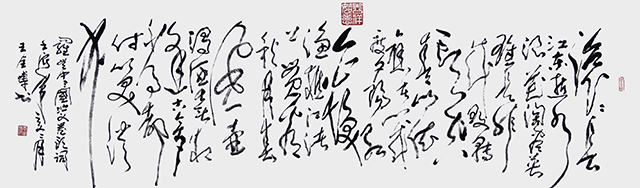 滚滚长
江东逝水
浪花淘尽英
雄是非
成败转
头空
青山依
旧在几
度夕阳红
白发
渔樵江渚
上惯看
秋月春
风一壶
浊酒喜相
逢古今多
少事都
付笑谈
中